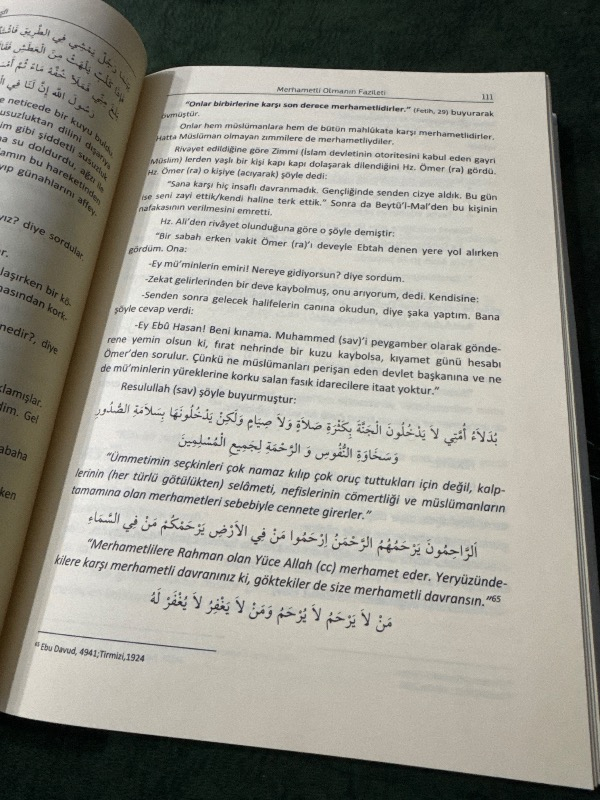 بَيْنَمَا رَجُلٌ يَمْشِي فِي الطَّرِيقِ
neticede bir kuyu buldu.
susuzluktan dilini dışarıya
im gibi şiddetli susuzluk
na su doldurdu, ağzı ile
lamın bu hareketinden
yıp günahlarını affey-
yız? diye sordular
ur.
laşırken bir kö-
basından kork-
nedir?, diye
klamışlar.
dim. Gel
abaha
ken
Merhametli Olmanın Fazileti 111
"Onlar birbirlerine karşı son derece merhametlidirler." (Fetih, 29) buyurarak
övmüştür.
Onlar hem müslümanlara hem de bütün mahlûkata karşı merhametlidirler.
Hatta Müslüman olmayan zımmilere de merhametliydiler.
Rivayet edildiğine göre Zimmi (İslam devletinin otoritesini kabul eden gayri
Müslim) lerden yaşlı bir kişi kapı kapı dolaşarak dilendiğini Hz. Ömer (ra) gördü.
Hz. Ömer (ra) o kişiye (acıyarak) şöyle dedi:
"Sana karşı hiç insaflı davranmadık. Gençliğinde senden cizye aldık. Bu gün
ise seni zayi ettik/kendi haline terk ettik." Sonra da Beytü'l-Mal'den bu kişinin
nafakasının verilmesini emretti.
Hz. Ali'den rivâyet olunduğuna göre o şöyle demiştir:
"Bir sabah erken vakit Ömer (ra)'ı deveyle Ebtah denen yere yol alırken
gördüm. Ona:
-Ey mü'minlerin emiri! Nereye gidiyorsun? diye sordum.
-Zekat gelirlerinden bir deve kaybolmuş, onu arıyorum, dedi. Kendisine:
-Senden sonra gelecek halifelerin canına okudun, diye şaka yaptım. Bana
şöyle cevap verdi:
-Ey Ebû Hasan! Beni kınama. Muhammed (sav)'i peygamber olarak gönde-
rene yemin olsun ki, fırat nehrinde bir kuzu kaybolsa, kıyamet günü hesabı
Ömer'den sorulur. Çünkü ne müslümanları perişan eden devlet başkanına ve ne
de mü'minlerin yüreklerine korku salan fasık idarecilere itaat yoktur."
Resulullah (sav) şöyle buyurmuştur:
بُدَلَاءُ أُمَّتِي لاَ يَدْخُلُونَ الْجَنَّةَ بِكَثْرَةِ صَلاَةٍ وَلاَ صِيَامٍ وَلَكِنْ يَدْخُلُونَهَا بِسَلاَمَةِ الصُّدُورِ
وَسَخَاوَةِ النُّفُوسِ وَ الرَّحْمَةِ لِجَمِيعِ الْمُسْلِمِينَ
"Ümmetimin seçkinleri çok namaz kılıp çok oruç tuttukları için değil, kalp-
lerinin (her türlü götülükten) selâmeti, nefislerinin cömertliği ve müslümanların
tamamına olan merhametleri sebebiyle cennete girerler."
اَلرَّاحِمُونَ يَرْحَمُهُمُ الرَّحْمَنُ اِرْحَمُوا مَنْ فِي الْاَرْضِ يَرْحَمْكُمْ مَنْ فِي السَّمَاءِ
"Merhametlilere Rahman olan Yüce Allah (cc) merhamet eder. Yeryüzünde-
kilere karşı merhametli davranınız ki, göktekiler de size merhametli davransın."65
مَنْ لاَ يَرْحَمُ لاَ يُرْحَمُ وَمَنْ لاَ يَغْفِرُ لاَ يُغْفَرُ لَهُ
65 Ebu Davud, 4941;Tirmizi,1924